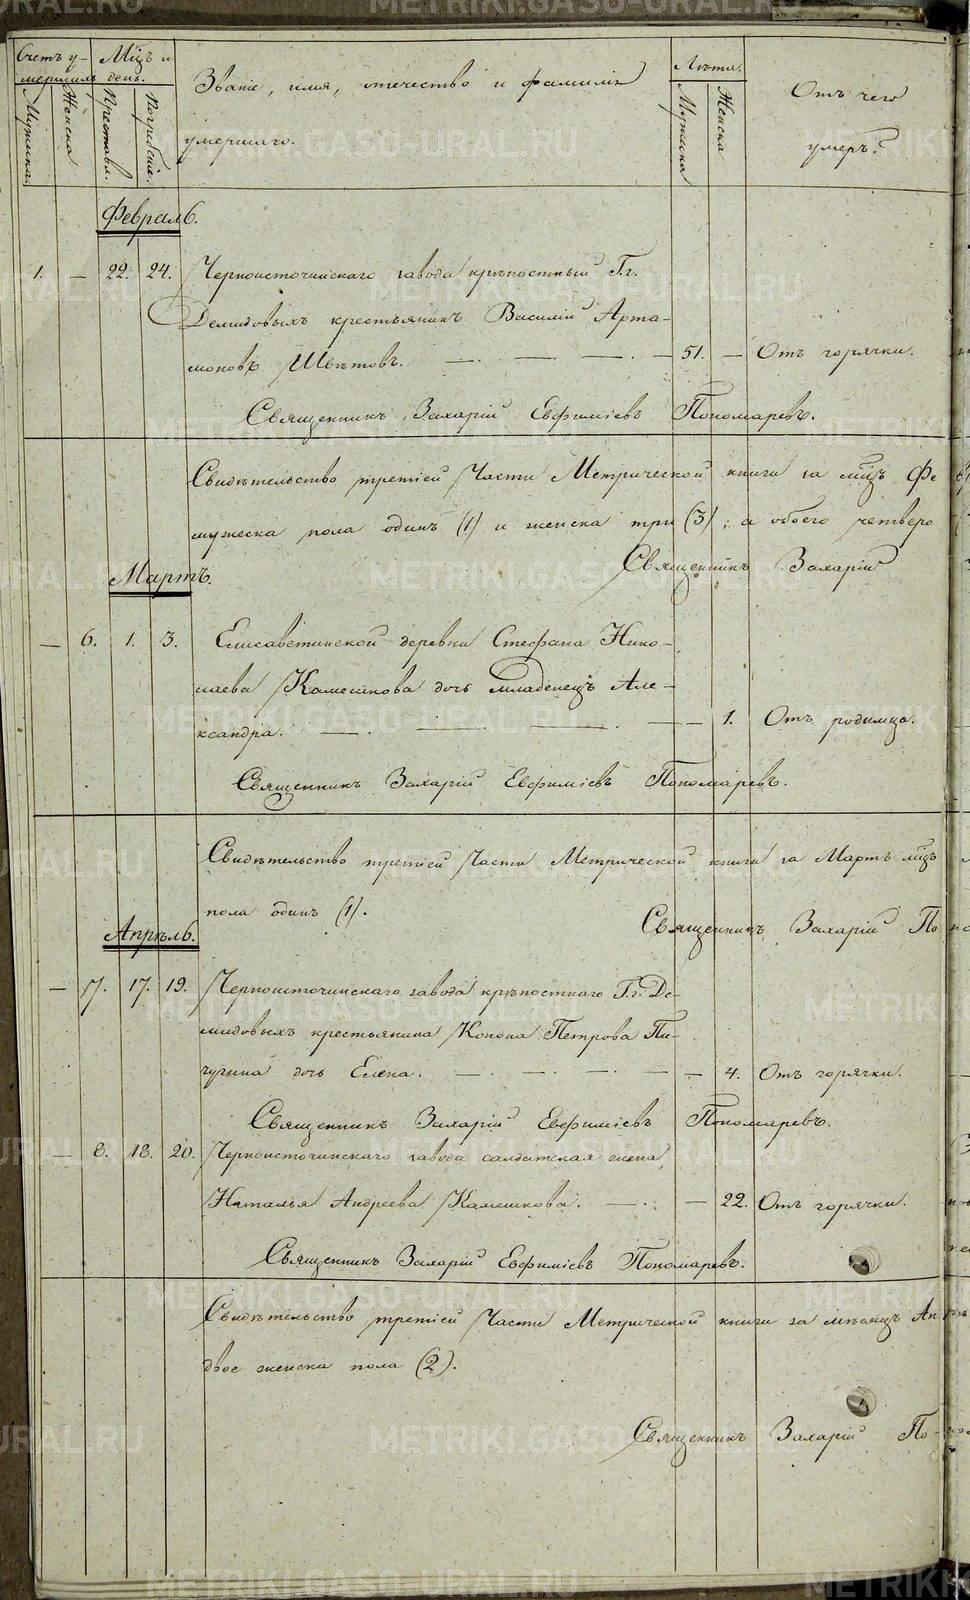 Счетъ умершихъ
Мужска.
Женска
Мѣсяцъ и день.
Преставл.
Погребенiе.
Званiе, имя, отечество и фамилiя
умершаго.
Лѣта.
Мужска
Женска
Отъ чего
умеръ?
Февраль.
1. — 22. 24. Черноисточинскаго завода крѣпостный Г.г.
Демидовыхъ крестьянинъ Василiй Арта-
моновъ Швѣтовъ. — 51. — Отъ горячки.
Священникъ Захарiй Евфимiевъ Пономаревъ.
Свидѣтельство третiей Части Метрической книги за мцъ Фе
мужеска пола одинъ (1) и женска три (3); а обоего четверо
Священникъ Захарiй
Мартъ.
— 6. 1. 3. Елисаветинской деревни Стефана Нико-
лаева Камешкова дочь младенецъ Але-
ксандра. — — 1. Отъ родимца.
Священникъ Захарiй Евфимiевъ Пономаревъ.
Свидѣтельство третiей Части Метрической книги за Мартъ мцъ
пола одинъ (1).
Священникъ Захарiй По
Апрѣль.
— 7. 17. 19. Черноисточинскаго завода крѣпостнаго Г.г. Де-
мидовыхъ крестьянина Конона Петрова Пи-
чугина дочь Елена. — — 4. Отъ горячки.
Священникъ Захарiй Евфимiевъ Пономаревъ.
— 8. 18. 20. Черноисточинскаго завода солдатская жена
Наталья Андреева Камешкова. — — 22. Отъ горячки.
Священникъ Захарiй Евфимiевъ Пономаревъ.
Свидѣтельство третiей Части Метрической книги за мѣсяцъ Ап
двое женска пола (2).
Священникъ Захарiй По-
METRIKI.GASO-URAL.RU